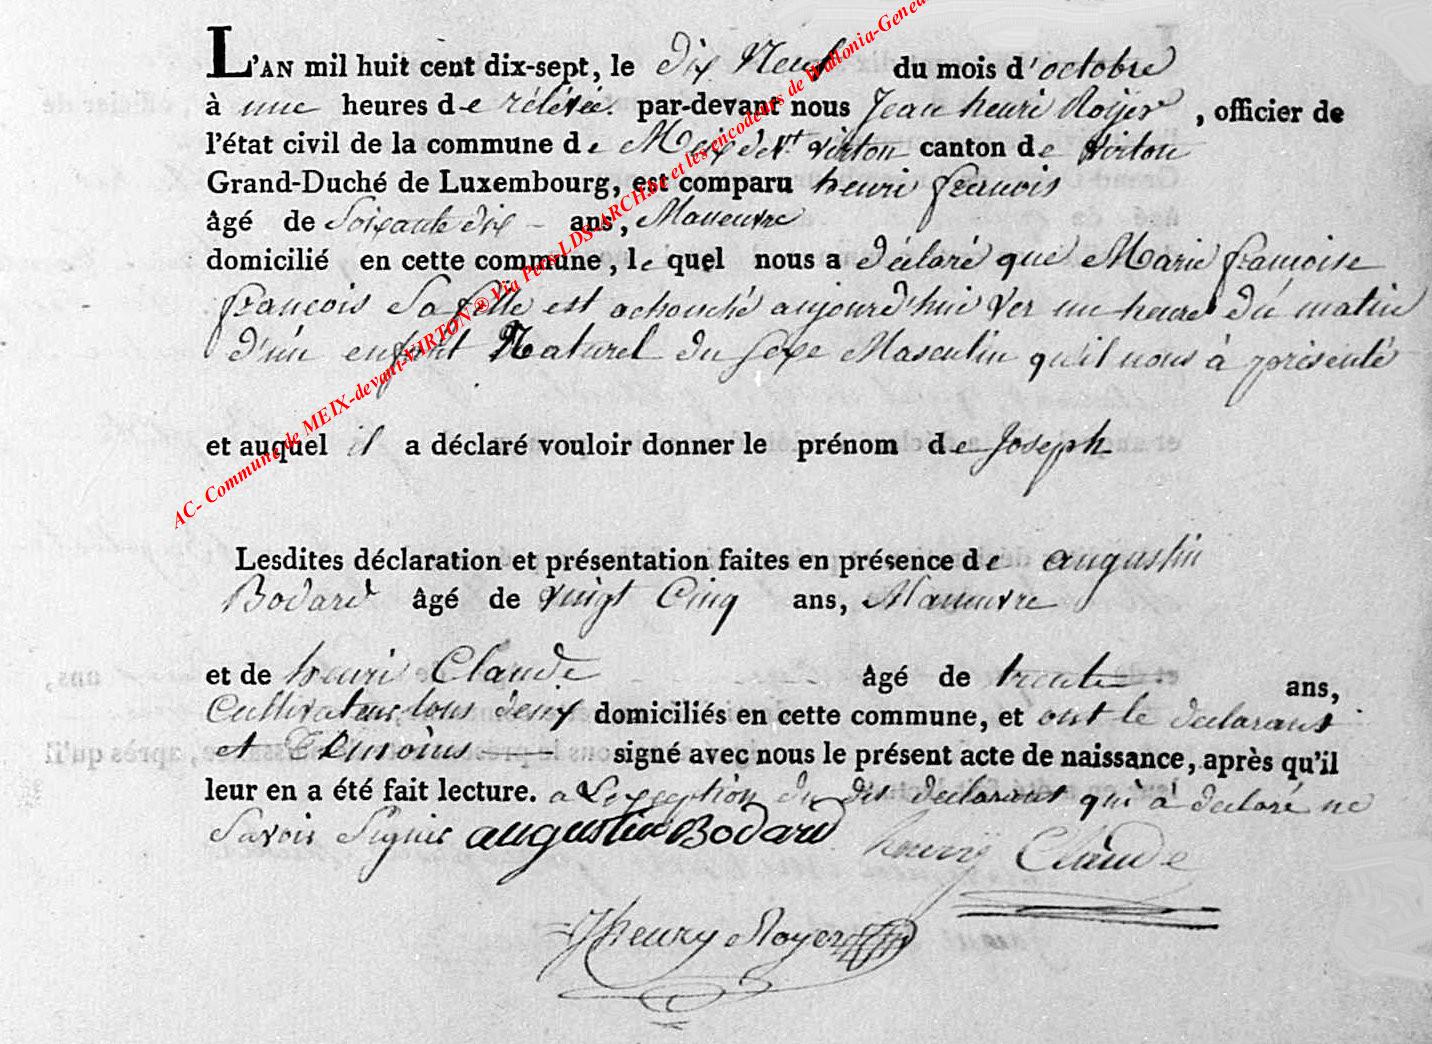 L'AN mil huit cent dix-sept, le dix Neuf du mois d'octobre
à une heures de rélévée. par-devant nous Jean henri Roÿer, officier de
l'état civil de la commune de Meix devt virton canton de virton
Grand-Duché de Luxembourg, est comparu henri francois
âgé de Soixante dix - ans, Maneuvre
domicilié en cette commune, le quel nous a déclaré que Marie francoise
françois Sa fille est achouché aujourd'hui ver un heure du matin
d'un enfant Naturel du Sexe Masculin qu'il nous à présenté
et auquel il a déclaré vouloir donner le prénom de Joseph
Lesdites déclaration et présentation faites en présence de augustin
Bodard âgé de vingt Cinq ans, Maneuvre
et de henri Claude âgé de trente ans,
Cultivateur, tous deux domiciliés en cette commune, et ont le declarant
et Temoins signé avec nous le présent acte de naissance, après qu'il
leur en a été fait lecture. a L'exception du dit declarant qui à declaré ne
Savoir Signer augustin Bodard henrÿ Claude
JHenry Royer
AC- Commune de MEIX-devant-VIRTON ® Via Pers-LDS-ARCH.be et les encodeurs de Wallonia-Genea